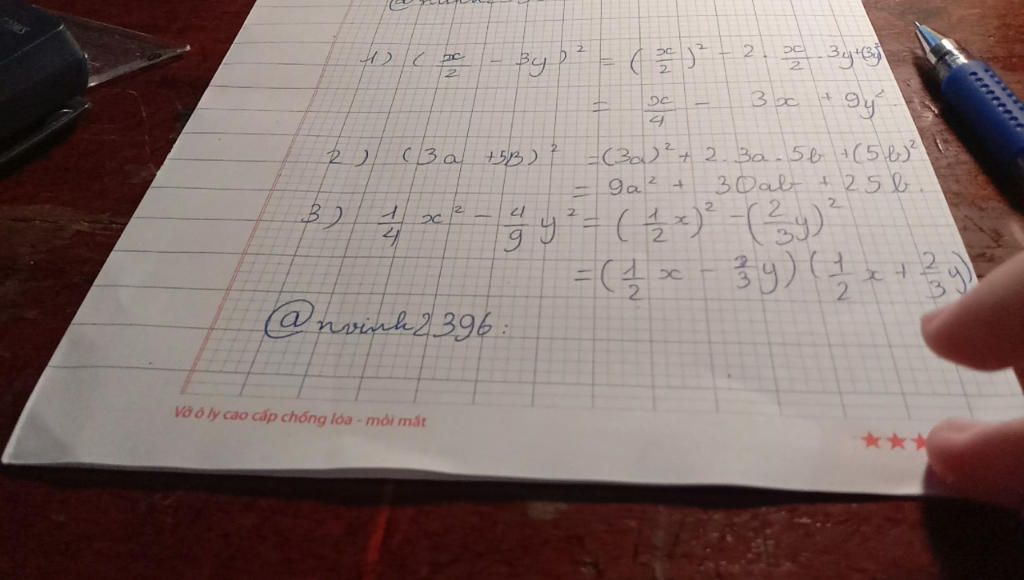 1) (x/2 - 3y)² = (x/2)² - 2 . x/2 . 3y + (3y)²
= x/4 - 3x + 9y²
2) (3a + 5B)² = (3a)² + 2 . 3a . 5b + (5b)²
= 9a² + 30ab + 25b.
3) 1/4 x² - 4/9 y² = (1/2 x)² - (2/3 y)²
= (1/2 x - 2/3 y) (1/2 x + 2/3 y)
@nvinh2396:
Vở ô ly cao cấp chống lóa - mỏi mắt
★★★